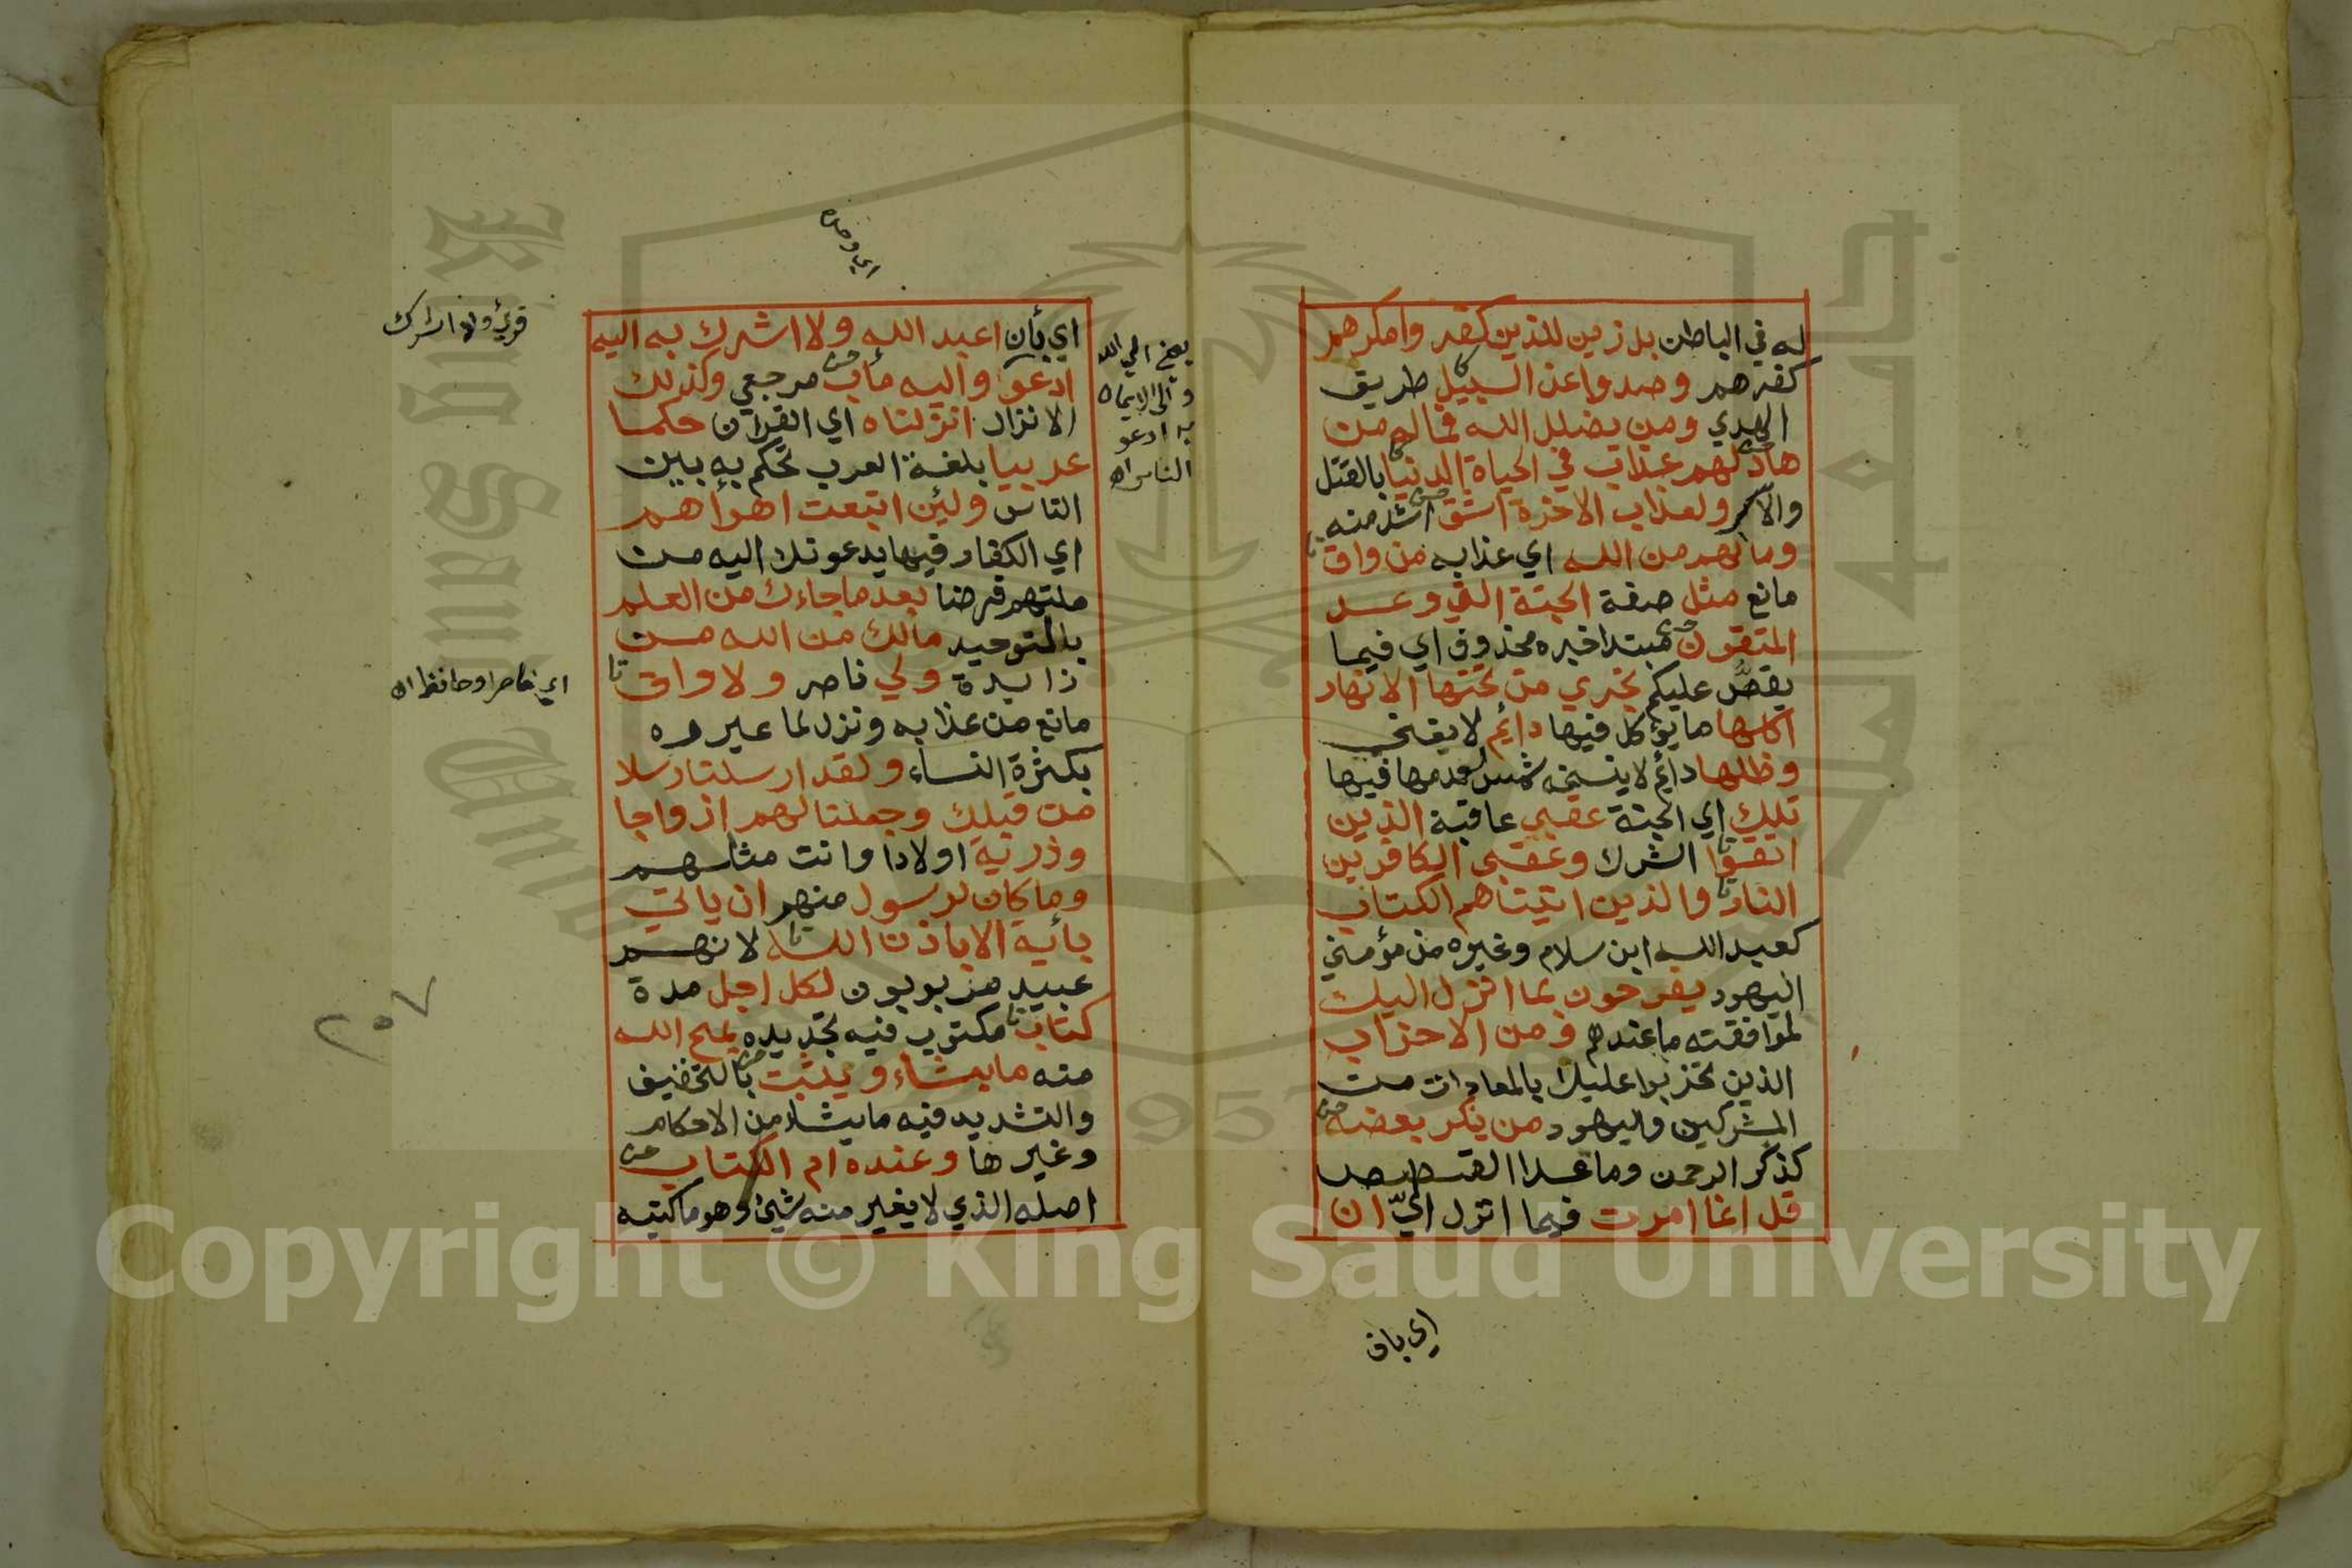 له في الباطن بل زين للذين كفر وامكرهم
كفرهم وصدوا عن السبيل طريق
الهدي ومن يضلل الله فما له من
هاد لهم عذاب في الحياة الدنيا بالقتل
والاسر ولعذاب الاخرة اشق اشد منه
وما لهم من الله اي عذابه من واق
مانع مثل صفة الجنة التي وعد
المتقون مبتدا خبره محذوف اي فيما
يقصُّ عليكم تجري من تحتها الانهار
اكلها ما يؤكل فيها دائم لا يفني
وظلها دائم لا ينسخه شمس لعدمها فيها
تلك اي الجنة عقبي عاقبة الذين
اتقوا الشرك وعقبي الكافرين
النار والذين اتيناهم الكتاب
كعبد الله ابن سلام وغيره من مؤمني
اليهود يفرحون بما انزل اليك
لموافقته ما عندهم ومن الاحزاب
الذين تحزبوا عليك بالمعادات من
المشركين واليهود من ينكر بعضه
كذكر الرحمن وما عدا القصص
قل انما امرت فيما انزل اليّ ان
اي باق
اي بأن اعبد الله ولا اشرك به اليه
ادعو واليه مأب مرجعي وكذلك
الانزال انزلناه اي القرآن حكما
عربيا بلغة العرب تحكم به بين
الناس ولئن اتبعت اهواهم
اي الكفار فيما يدعونك اليه من
ملتهم فرضا بعد ما جاءك من العلم
بالتوحيد مالك من الله من
زايدة ولي ناصر ولا واق
مانع من عذابه ونزل لما عيروه
بكثرة النساء ولقد ارسلنا رسلا
من قبلك وجعلنا لهم ازواجا
وذرية اولادا وانت مثلهم
وما كان لرسول منهم ان ياتي
بأية الا باذن الله لانهم
عبيد مربوبون لكل اجل مدة
كتاب مكتوب فيه تحديده يمح الله
منه ما يشاء ويثبت بالتخفيف
والتشديد فيه ما يشاء من الاحكام
وغيرها وعنده ام الكتاب
اصله الذي لا يغير منه شيئ وهو ما كتبه
الي الله
والي الايمان
به ادعو
الناس اه
قرئ ولا اشرك
اي ناصر او حافظ اه
٢٥٧
King Saud University
1957
Copyright © King Saud University